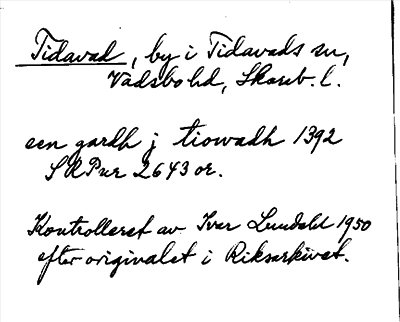 Tidavad, by i Tidavads sn,
Vadsbo hd, Skarab. l.
een gardh j tiowadh 1392
SRPnr 2643 or.
Kontrollerat av Ivar Lundahl 1950
efter originalet i Riksarkivet.